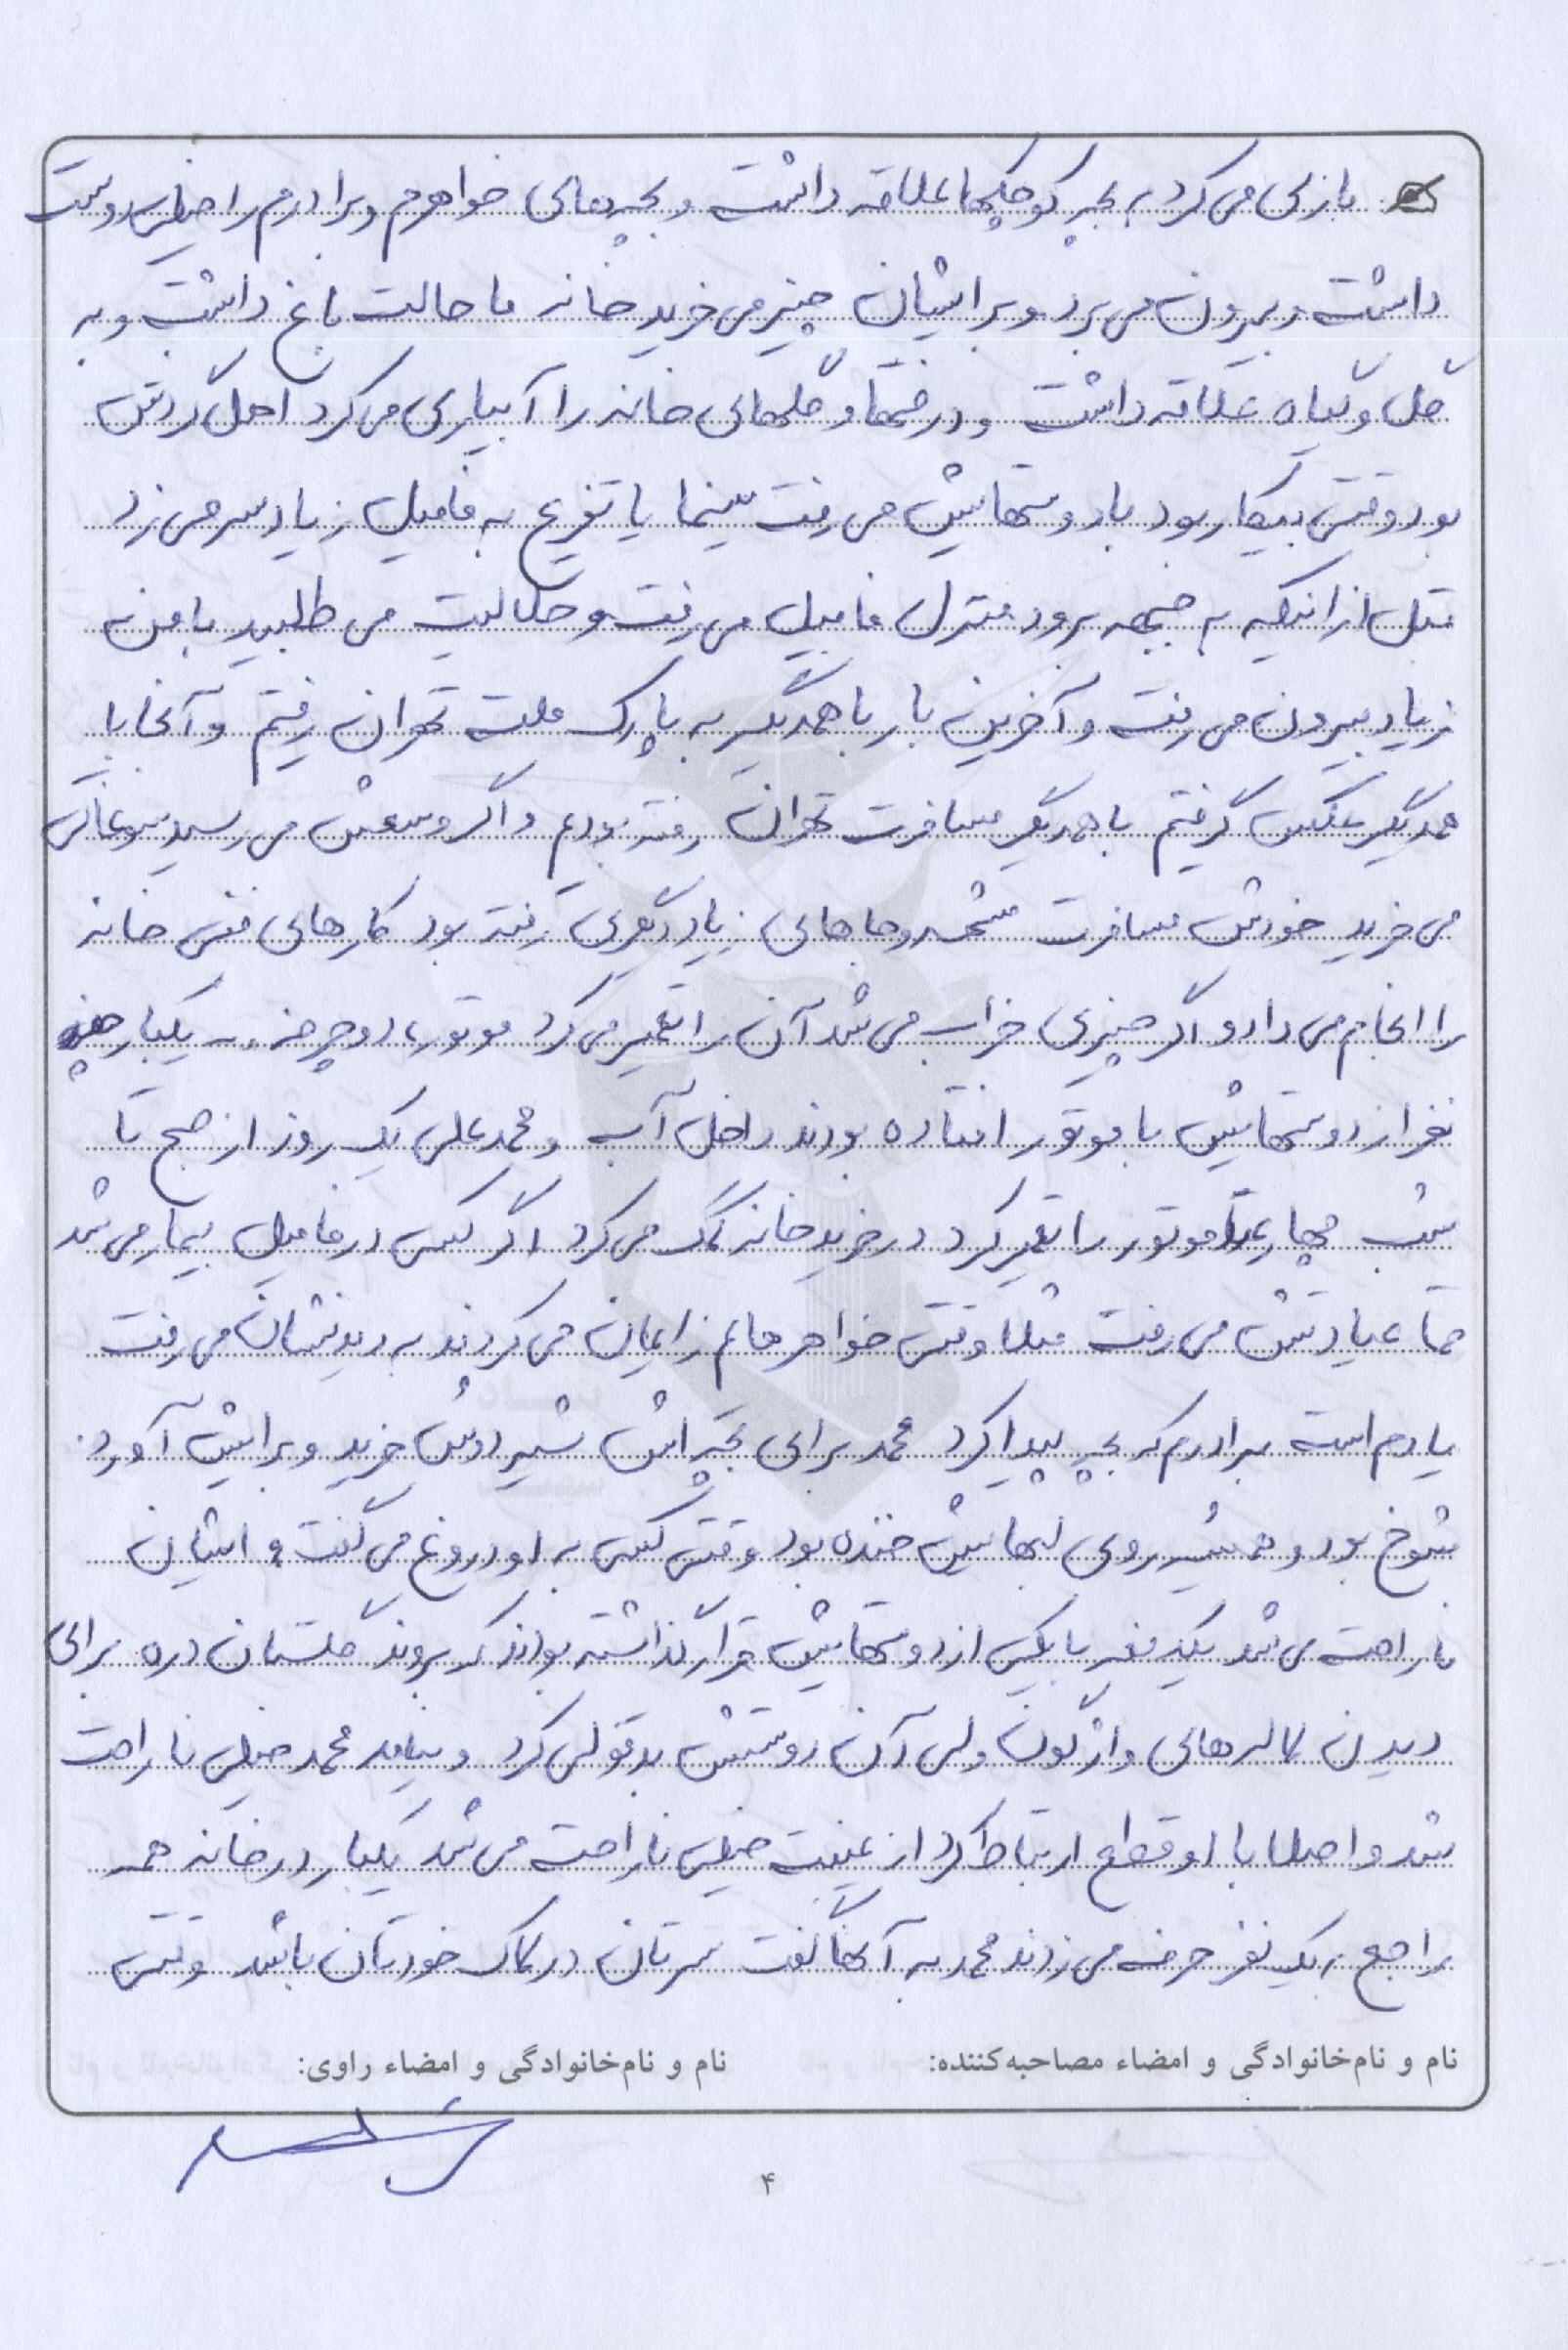 بازی می کرد، به بچه کوچکها علاقه داشت و بچه های خواهرم و برادرم را خیلی دوست
داشت و بیرون می برد و برایشان چیز می خرید خانه ما حالت باغ داشت و به
گل و گیاه علاقه داشت و درختها و گلهای خانه را آبیاری می کرد اهل گردش
بود وقتی بیکار بود با دوستهایش می رفت سینما یا تفریح به فامیل زیاد سر می زد
قبل از اینکه به جبهه برود منزل فامیل می رفت و حلالیت می طلبید با من
زیاد بیرون می رفت و آخرین بار با همدیگر به پارک ملت تهران رفتیم و آنجا با
همدیگر عکس گرفتیم با همدیگر مسافرت تهران رفته بودیم و اگر وسعش می رسید سوغاتی
می خرید خودش مسافرت مشهد و جاهای زیاد دیگری رفته بود کارهای فنی خانه
را انجام می داد و اگر چیزی خراب می شد آن را تعمیر می کرد موتور، دوچرخه، یکبار چند
نفر از دوستهایش با موتور افتاده بودند داخل آب و محمدعلی یک روز از صبح تا
شب چهار عدد موتور را تعمیر کرد در خرید خانه کمک می کرد اگر کسی در فامیل بیمار می شد
حتما عیادتش می رفت مثلا وقتی خواهرهایم زایمان می کردند به دیدنشان می رفت
یادم است برادرم که بچه پیدا کرد محمد برای بچه اش شیردوش خرید و برایش آورد.
شوخ بود و همیشه روی لبهایش خنده بود وقتی کسی به او دروغ می گفت ایشان
ناراحت می شد یکدفعه با یکی از دوستهایش قرار گذاشته بودند که بروند گلستان دره برای
دیدن لاله های واژگون ولی آن دوستش بدقولی کرد و نیامد محمد خیلی ناراحت
شد و اصلا با او قطع ارتباط کرد از غیبت خیلی ناراحت می شد یکبار در خانه همه
راجع به یک نفر حرف می زدند محمد به آنها گفت سرتان در کلاک خودتان باشد وقتی
نام و نام‌خانوادگی و امضاء مصاحبه‌کننده: نام و نام‌خانوادگی و امضاء راوی:
۴